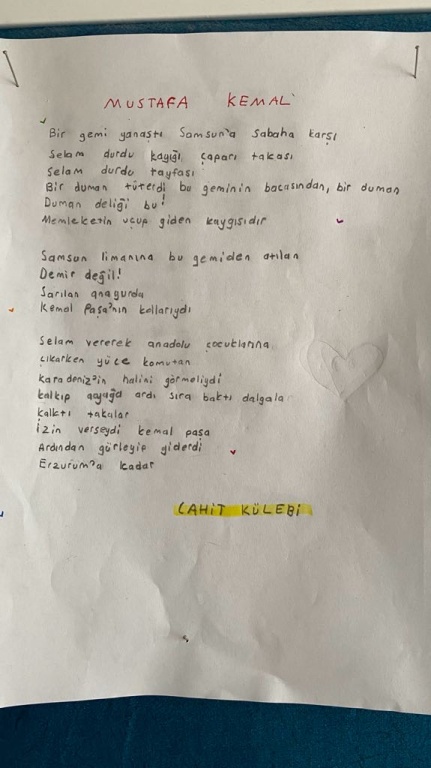 MUSTAFA KEMAL
Bir gemi yanaştı Samsun'a sabaha karşı
Selam durdu kayığı, çaparı takası
Selam durdu tayfası
Bir duman tüterdi bu geminin bacasından, bir duman
Duman deliği bu!
Memleketin uçup giden kaygısıdır
Samsun limanına bu gemiden atılan
Demir değil!
Sarılan anayurda
Kemal Paşa'nın kollarıydı
Selam vererek anadolu çocuklarına
Çıkarken yüce komutan
Karadeniz'in halini görmeliydi
kalkıp ayağa ardı sıra baktı dalgala
kalktı takalar
İzin verseydi kemal paşa
Ardından gürleyip giderdi
Erzurum'a kadar
CAHİT KÜLEBİ